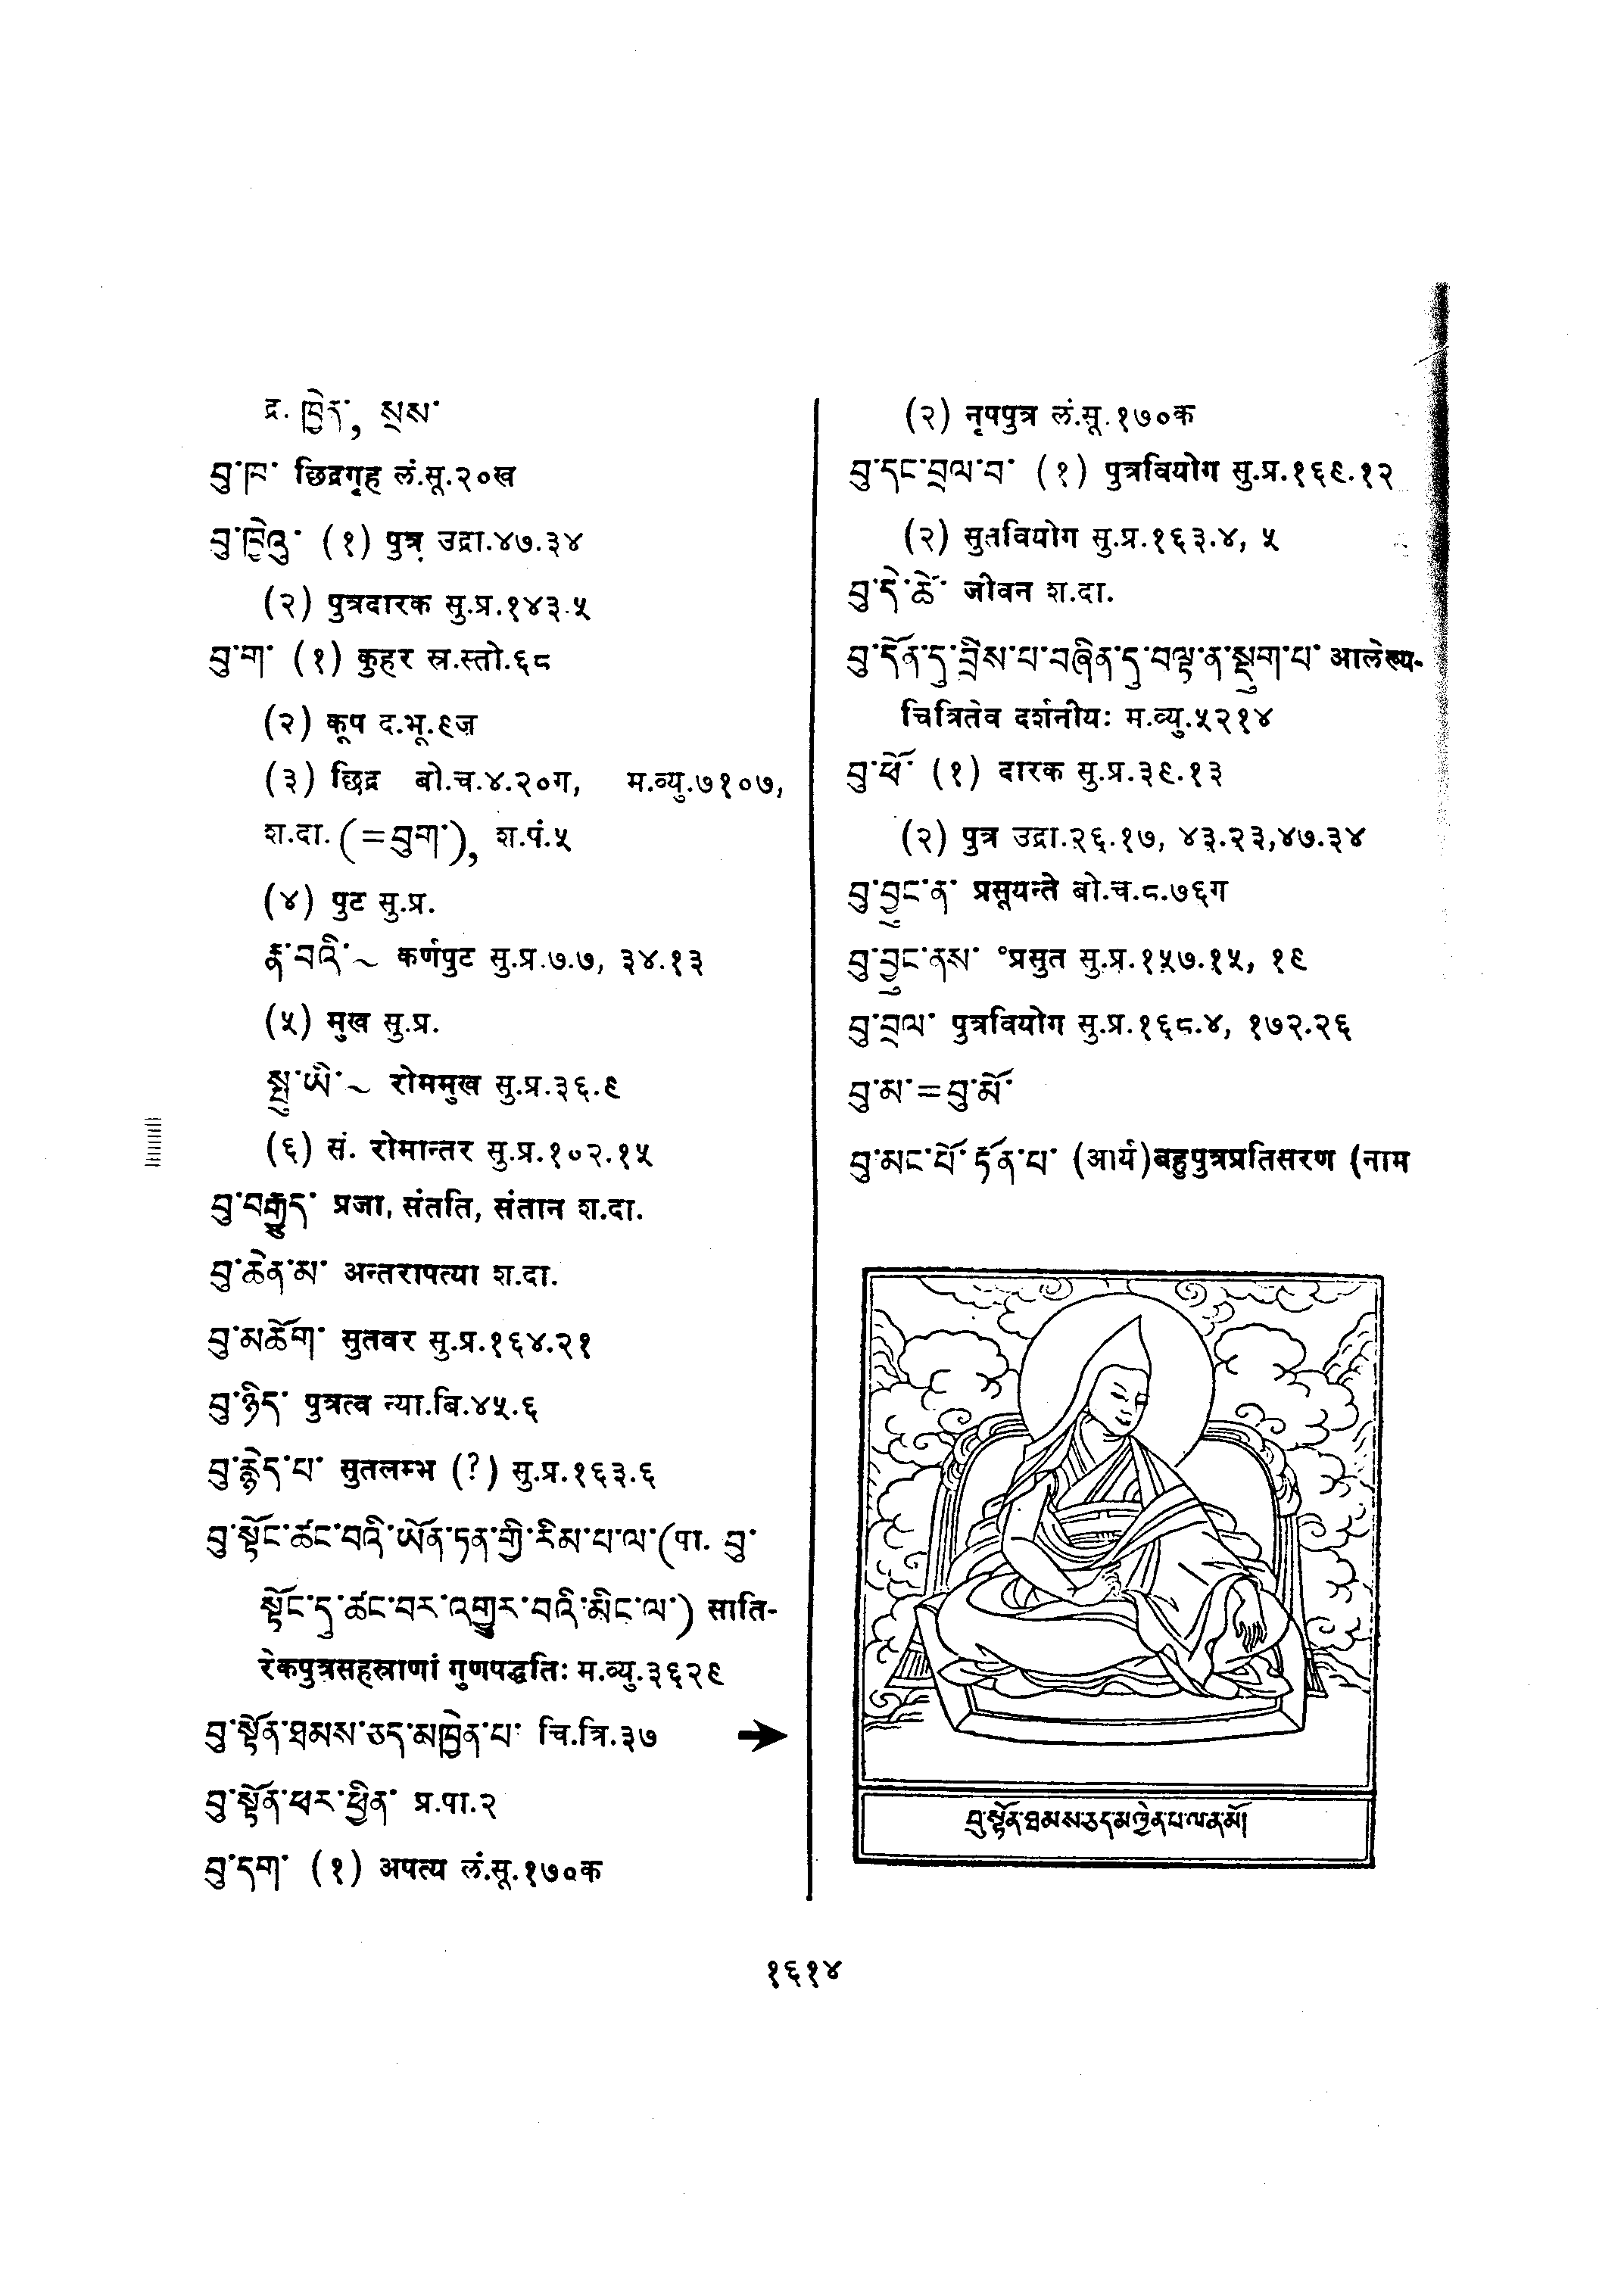 द्र. ཁྱེར་, སྲས་
བུ་ཁ་ छिद्रगृह लं.सू.२०ख
བུ་ཁྱེའུ་ (१) पुत्र उद्रा.४७.३४
(२) पुत्रदारक सु.प्र.१४३.५
བུ་ག་ (१) कुहर स्र.स्तो.६८
(२) कूप द.भू.९ज
(३) छिद्र बो.च.४.२०ग, म.व्यु.७१०७,
श.दा. (=བུག་), श.पं.५
(४) पुट सु.प्र.
རྣ་བའི་~ कर्णपुट सु.प्र.७.७, ३४.१३
(५) मुख सु.प्र.
སྤུ་ཡི་~ रोममुख सु.प्र.३६.९
(६) सं. रोमान्तर सु.प्र.१०२.१५
བུ་བརྒྱུད་ प्रजा, संतति, संतान श.दा.
བུ་ཆེན་མ་ अन्तरापत्या श.दा.
བུ་མཆོག་ सुतवर सु.प्र.१६४.२१
བུ་ཉིད་ पुत्रत्व न्या.बि.४५.६
བུ་རྙེད་པ་ सुतलम्भ (?) सु.प्र.१६३.६
བུ་སྟོང་ཚང་བའི་ཡོན་ཏན་གྱི་རིམ་པ་ལ་(पा. བུ་
སྟོང་དུ་ཚང་བར་འགྱུར་བའི་མིང་ལ་) साति-
रेकपुत्रसहस्राणां गुणपद्धतिः म.व्यु.३६२९
བུ་སྟོན་ཐམས་ཅད་མཁྱེན་པ་ चि.त्रि.३७ ➔
བུ་སྟོན་ཕར་ཕྱིན་ प्र.पा.२
བུ་དག་ (१) अपत्य लं.सू.१७०क
(२) नृपपुत्र लं.सू.१७०क
བུ་དང་བྲལ་བ་ (१) पुत्रवियोग सु.प्र.१६९.१२
(२) सुतवियोग सु.प्र.१६३.४, ५
བུ་དེ་ཚེ་ जीवन श.दा.
བུ་དོན་དུ་བྲིས་པ་བཞིན་དུ་བལྟ་ན་སྡུག་པ་ आलेख्य-
चित्रितेव दर्शनीयः म.व्यु.५२१४
བུ་ཕོ་ (१) दारक सु.प्र.३९.१३
(२) पुत्र उद्रा.२६.१७, ४३.२३,४७.३४
བུ་བྱུང་ན་ प्रसूयन्ते बो.च.८.७६ग
བུ་བྱུང་ནས་ °प्रसुत सु.प्र.१५७.१५, १९
བུ་བྲལ་ पुत्रवियोग सु.प्र.१६८.४, १७२.२६
བུ་མ་=བུ་མོ་
བུ་མང་པོ་རྟོན་པ་ (आर्य)बहुपुत्रप्रतिसरण (नाम
བུ་སྟོན་ཐམས་ཅད་མཁྱེན་པ་ལ་ན་མོ།
१६१४